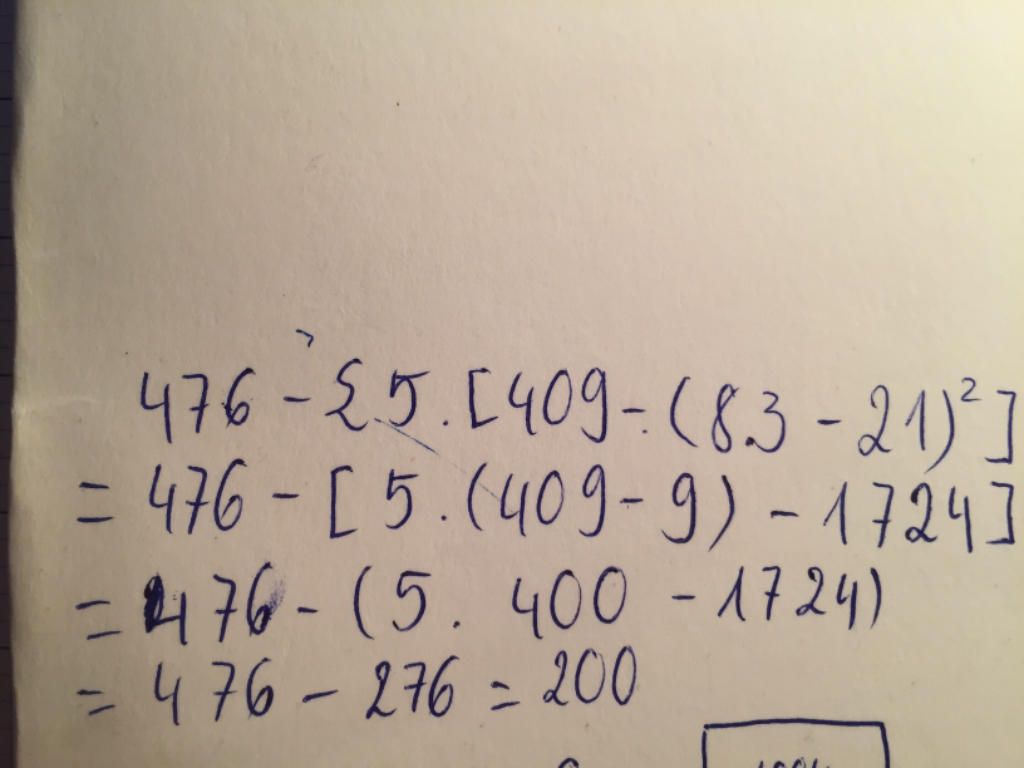 476 - { 5 . [ 409 - (8.3 - 21)² ]
= 476 - [ 5 . (409 - 9) - 1724 ]
= 476 - ( 5 . 400 - 1724 )
= 476 - 276 = 200